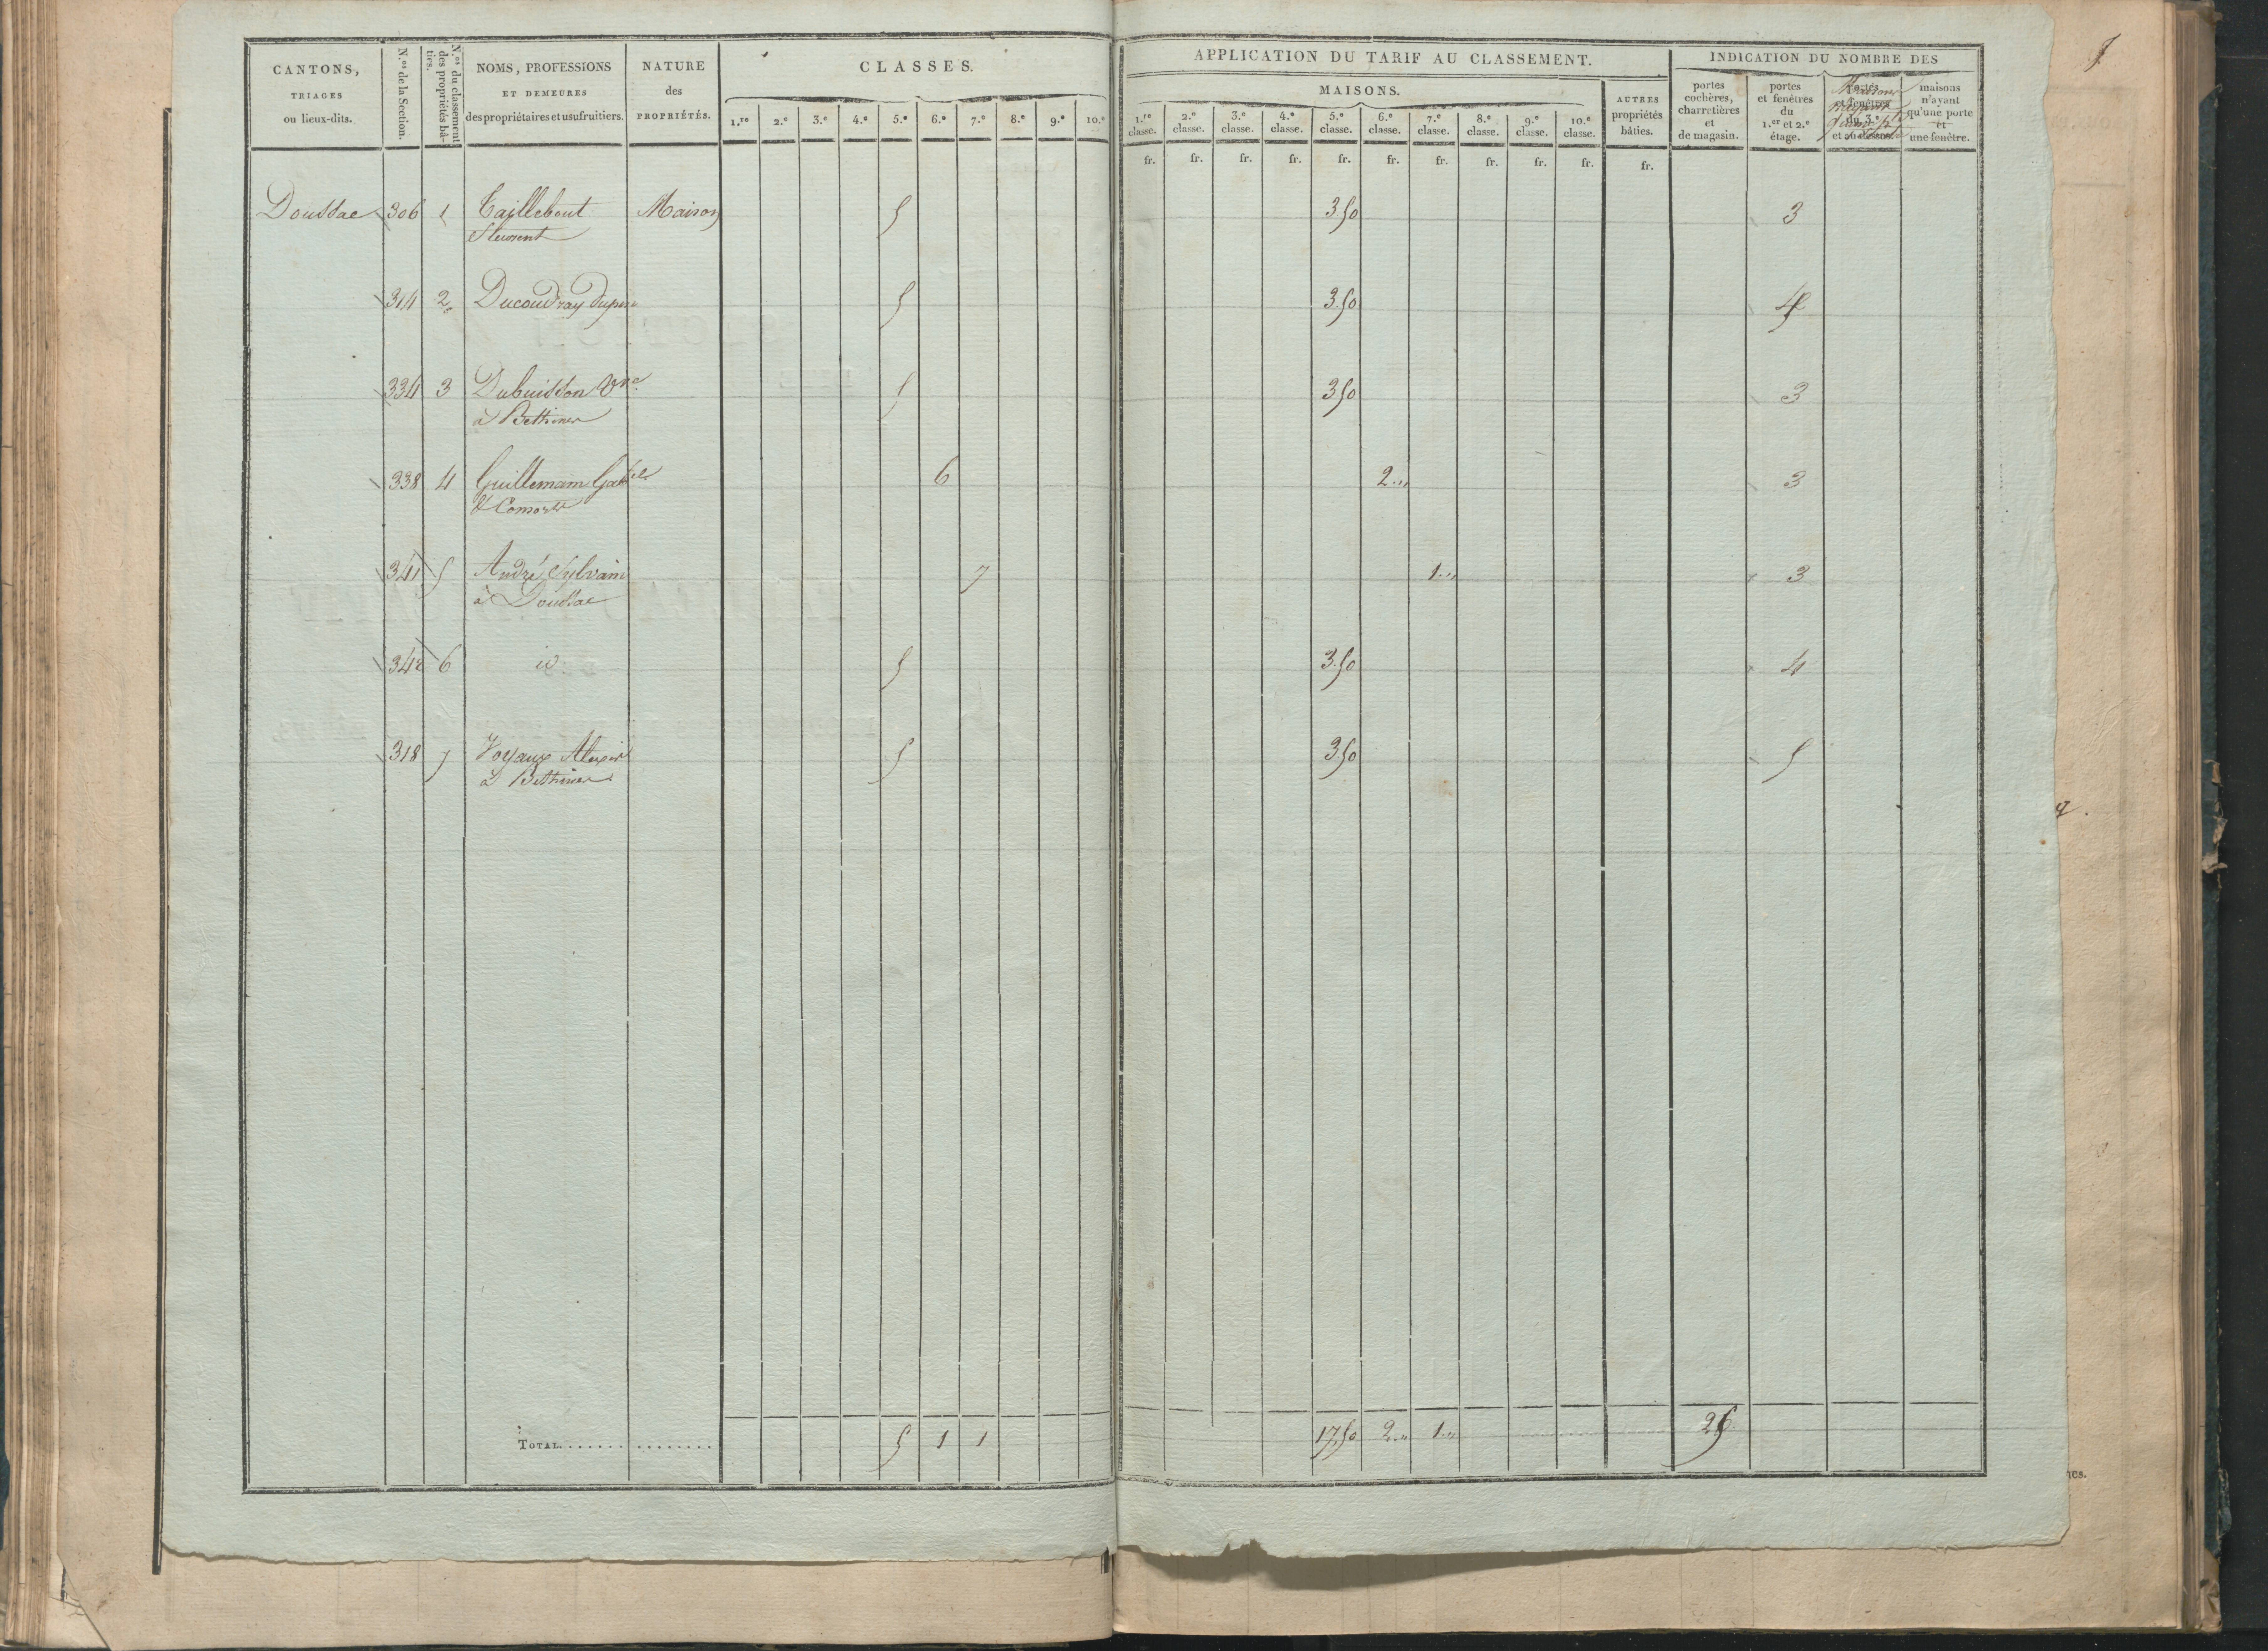 CANTONS,
TRIAGES
ou lieux-dits.
N.os de la Section.
N.os du classement
des propriétés bâ-
ties.
NOMS, PROFESSIONS
ET DEMEURES
des propriétaires et usufruitiers.
NATURE
des
PROPRIÉTÉS.
CLASSES.
1.re 2.e 3.e 4.e 5.e 6.e 7.e 8.e 9.e 10.e
APPLICATION DU TARIF AU CLASSEMENT.
MAISONS.
1.re classe. 2.e classe. 3.e classe. 4.e classe. 5.e classe. 6.e classe. 7.e classe. 8.e classe. 9.e classe. 10.e classe.
AUTRES
propriétés
bâties.
INDICATION DU NOMBRE DES
portes
cochères,
charretières
et
de magasin.
portes
et fenêtres
du
1.er et 2.e
étage.
portes
et fenêtres
du 3.e
et au dessus
maisons
n'ayant
qu'une porte
et
une fenêtre.
fr. fr. fr. fr. fr. fr. fr. fr. fr. fr. fr.
Doussac 306 1 Taillebout Maison 5 3.50 3
314 2 Ducoudray 5 3.50 4
334 3 Dubuisson Vve 5 3.50 3
à Bethines
338 4 Guillemain Gabel 6 2.,, 3
& Consorts
341 5 André Sylvain 7 1.,, 3
à Doussac
342 6 id. 5 3.50 4
318 7 Voyaux Alexis 5 3.50 5
à Bethines
TOTAL. . . . . . . . . . . . . . . 5 1 1 17,50 2.,, 1.,, 25